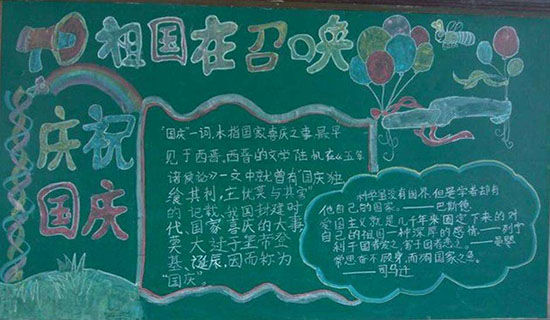 祖国在召唤
庆祝
国庆
"国庆"一词,本指国家喜庆之事,最早
见于西晋,西晋的文学陆机在《五年
诸侯论》一文中就曾有"国庆独
其利,忧莫与其害"
的记载,我国封建时
代、国家喜庆的大事
莫大过于皇帝登
基、诞辰,因而称为
"国庆"。
科学虽没有国界,但是学者却有
他自己的国家。——巴斯德
爱国主义就是几千年来固定下来的对
自己的祖国一种深厚的感情——列宁
利于国者爱之,害于国者恶之——晏婴
常思奋不顾身,而殉国家之急。
——司马迁